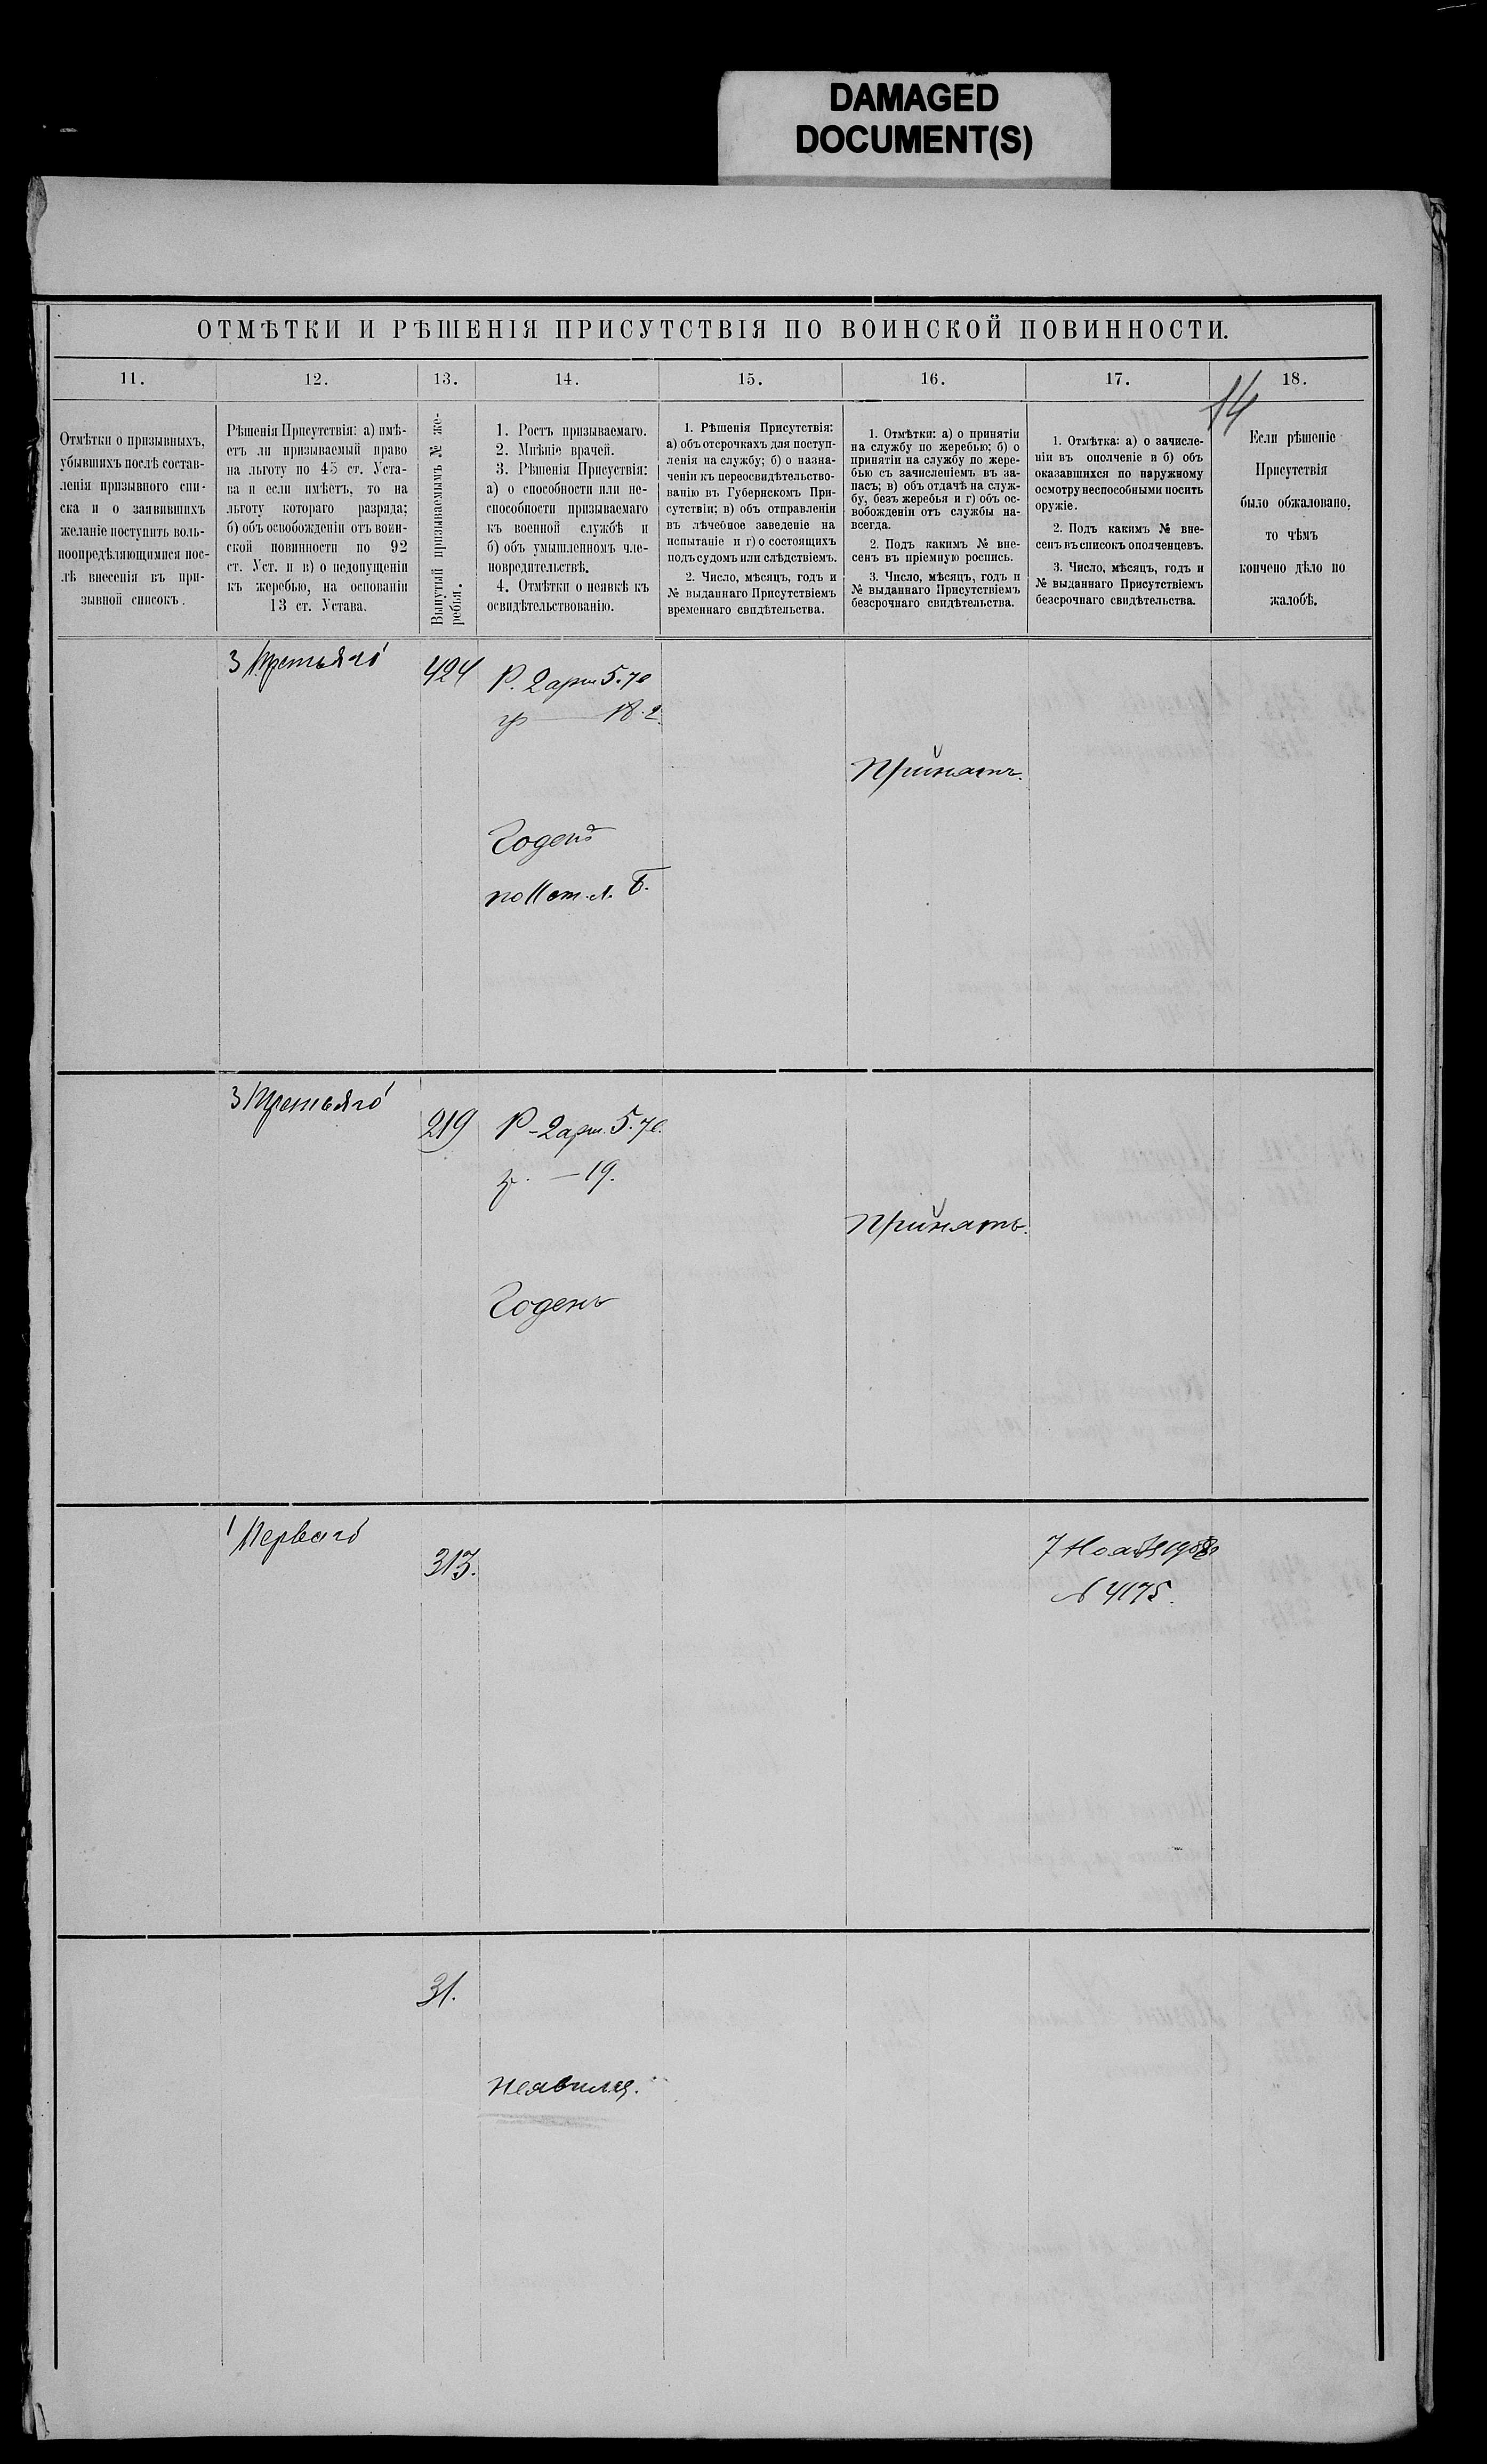 DAMAGED
DOCUMENT(S)
ОТМѢТКИ И РѢШЕНІЯ ПРИСУТСТВІЯ ПО ВОИНСКОЙ ПОВИННОСТИ.
11.
12.
13.
14.
15.
16.
17.
18.
14
Отмѣтки о призывныхъ,
убывшихъ послѣ состав-
ленія призывного спи-
ска и о заявившихъ
желаніе поступить воль-
ноопредѣляющимися пос-
лѣ внесенія въ при-
зывной списокъ.
Рѣшенія Присутствія: а) имѣ-
етъ ли призываемый право
на льготу по 45 ст. Уста-
ва и если имѣетъ, то на
льготу котораго разряда;
б) объ освобожденіи отъ воин-
ской повинности по 92
ст. Уст. и в) о недопущеніи
къ жеребью, на основаніи
13 ст. Устава.
Вынутый призываемымъ № же-
ребья.
1. Ростъ призываемаго.
2. Мнѣніе врачей.
3. Рѣшенія Присутвія:
а) о способности или не-
способности призываемаго
къ военной службѣ и
б) объ умышленномъ чле-
новредительствѣ.
4. Отмѣтки о неявкѣ къ
освидѣтельствованію.
1. Рѣшенія Присутствія:
а) объ отсрочкахъ для поступ-
ленія на службу; б) о назна-
ченіи къ переосвидѣтельство-
ванію въ Губернскомъ При-
сутствіи; в) объ отправленіи
въ лѣчебное заведеніе на
испытаніе и г) о состоящихъ
подъ судомъ или слѣдствіемъ.
2. Число, мѣсяцъ, годъ и
№ выданнаго Присутствіемъ
временнаго свидѣтельства.
1. Отмѣтки: а) о принятіи
на службу по жеребью; б) о
принятіи на службу по жере-
бью съ зачисленіемъ въ за-
пасъ; в) объ отдачѣ на служ-
бу, безъ жеребья и г) объ ос-
вобожденіи отъ службы на-
всегда.
2. Подъ какимъ № вне-
сенъ въ пріемную роспись.
3. Число, мѣсяцъ, годъ и
№ выданнаго Присутствіемъ
безсрочнаго свидѣтельства.
1. Отмѣтка: а) о зачисле-
ніи въ ополченіе и б) объ
оказавшихся по наружному
осмотру неспособными носить
оружіе.
2. Подъ какимъ № вне-
сенъ въ списокъ ополченцевъ.
3. Число, мѣсяцъ, годъ и
№ выданнаго Присутствіемъ
безсрочнаго свидѣтельства.
Если рѣшеніе
Присутствія
было обжаловано,
то чѣмъ
кончено дѣло по
жалобѣ.
3 Третьяго
424
Р. 2 арш 5. 7/8
гр 18. 2.
Принятъ.
Годенъ
по II ст. л. Б.
3 Третьяго
219
Р - 2 арш. 5. 7/8.
г. - 19.
Принятъ.
Годенъ
1 Перваго
313.
7 Ноября 1908
№ 4175.
31.
неявился.